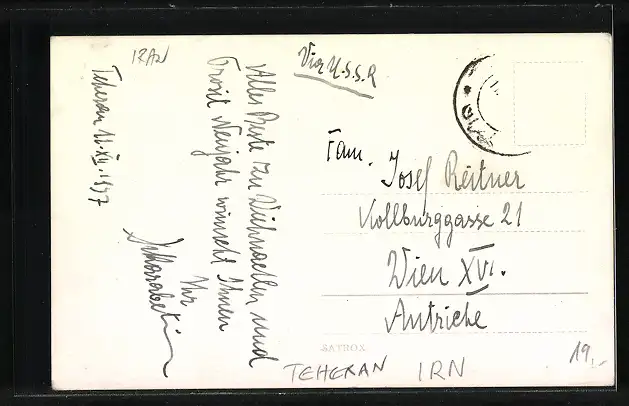 IRAN
Teheran 11.XII.1937
Alles Beste zu Weihnachten und
Prosit Neujahr wünscht Ihnen
Ihr
Via U.S.S.R
Fam. Josef Reitner
Kollburggasse 21
Wien XVI.
Autriche
SATROX
TEHERAN IRN
19,-